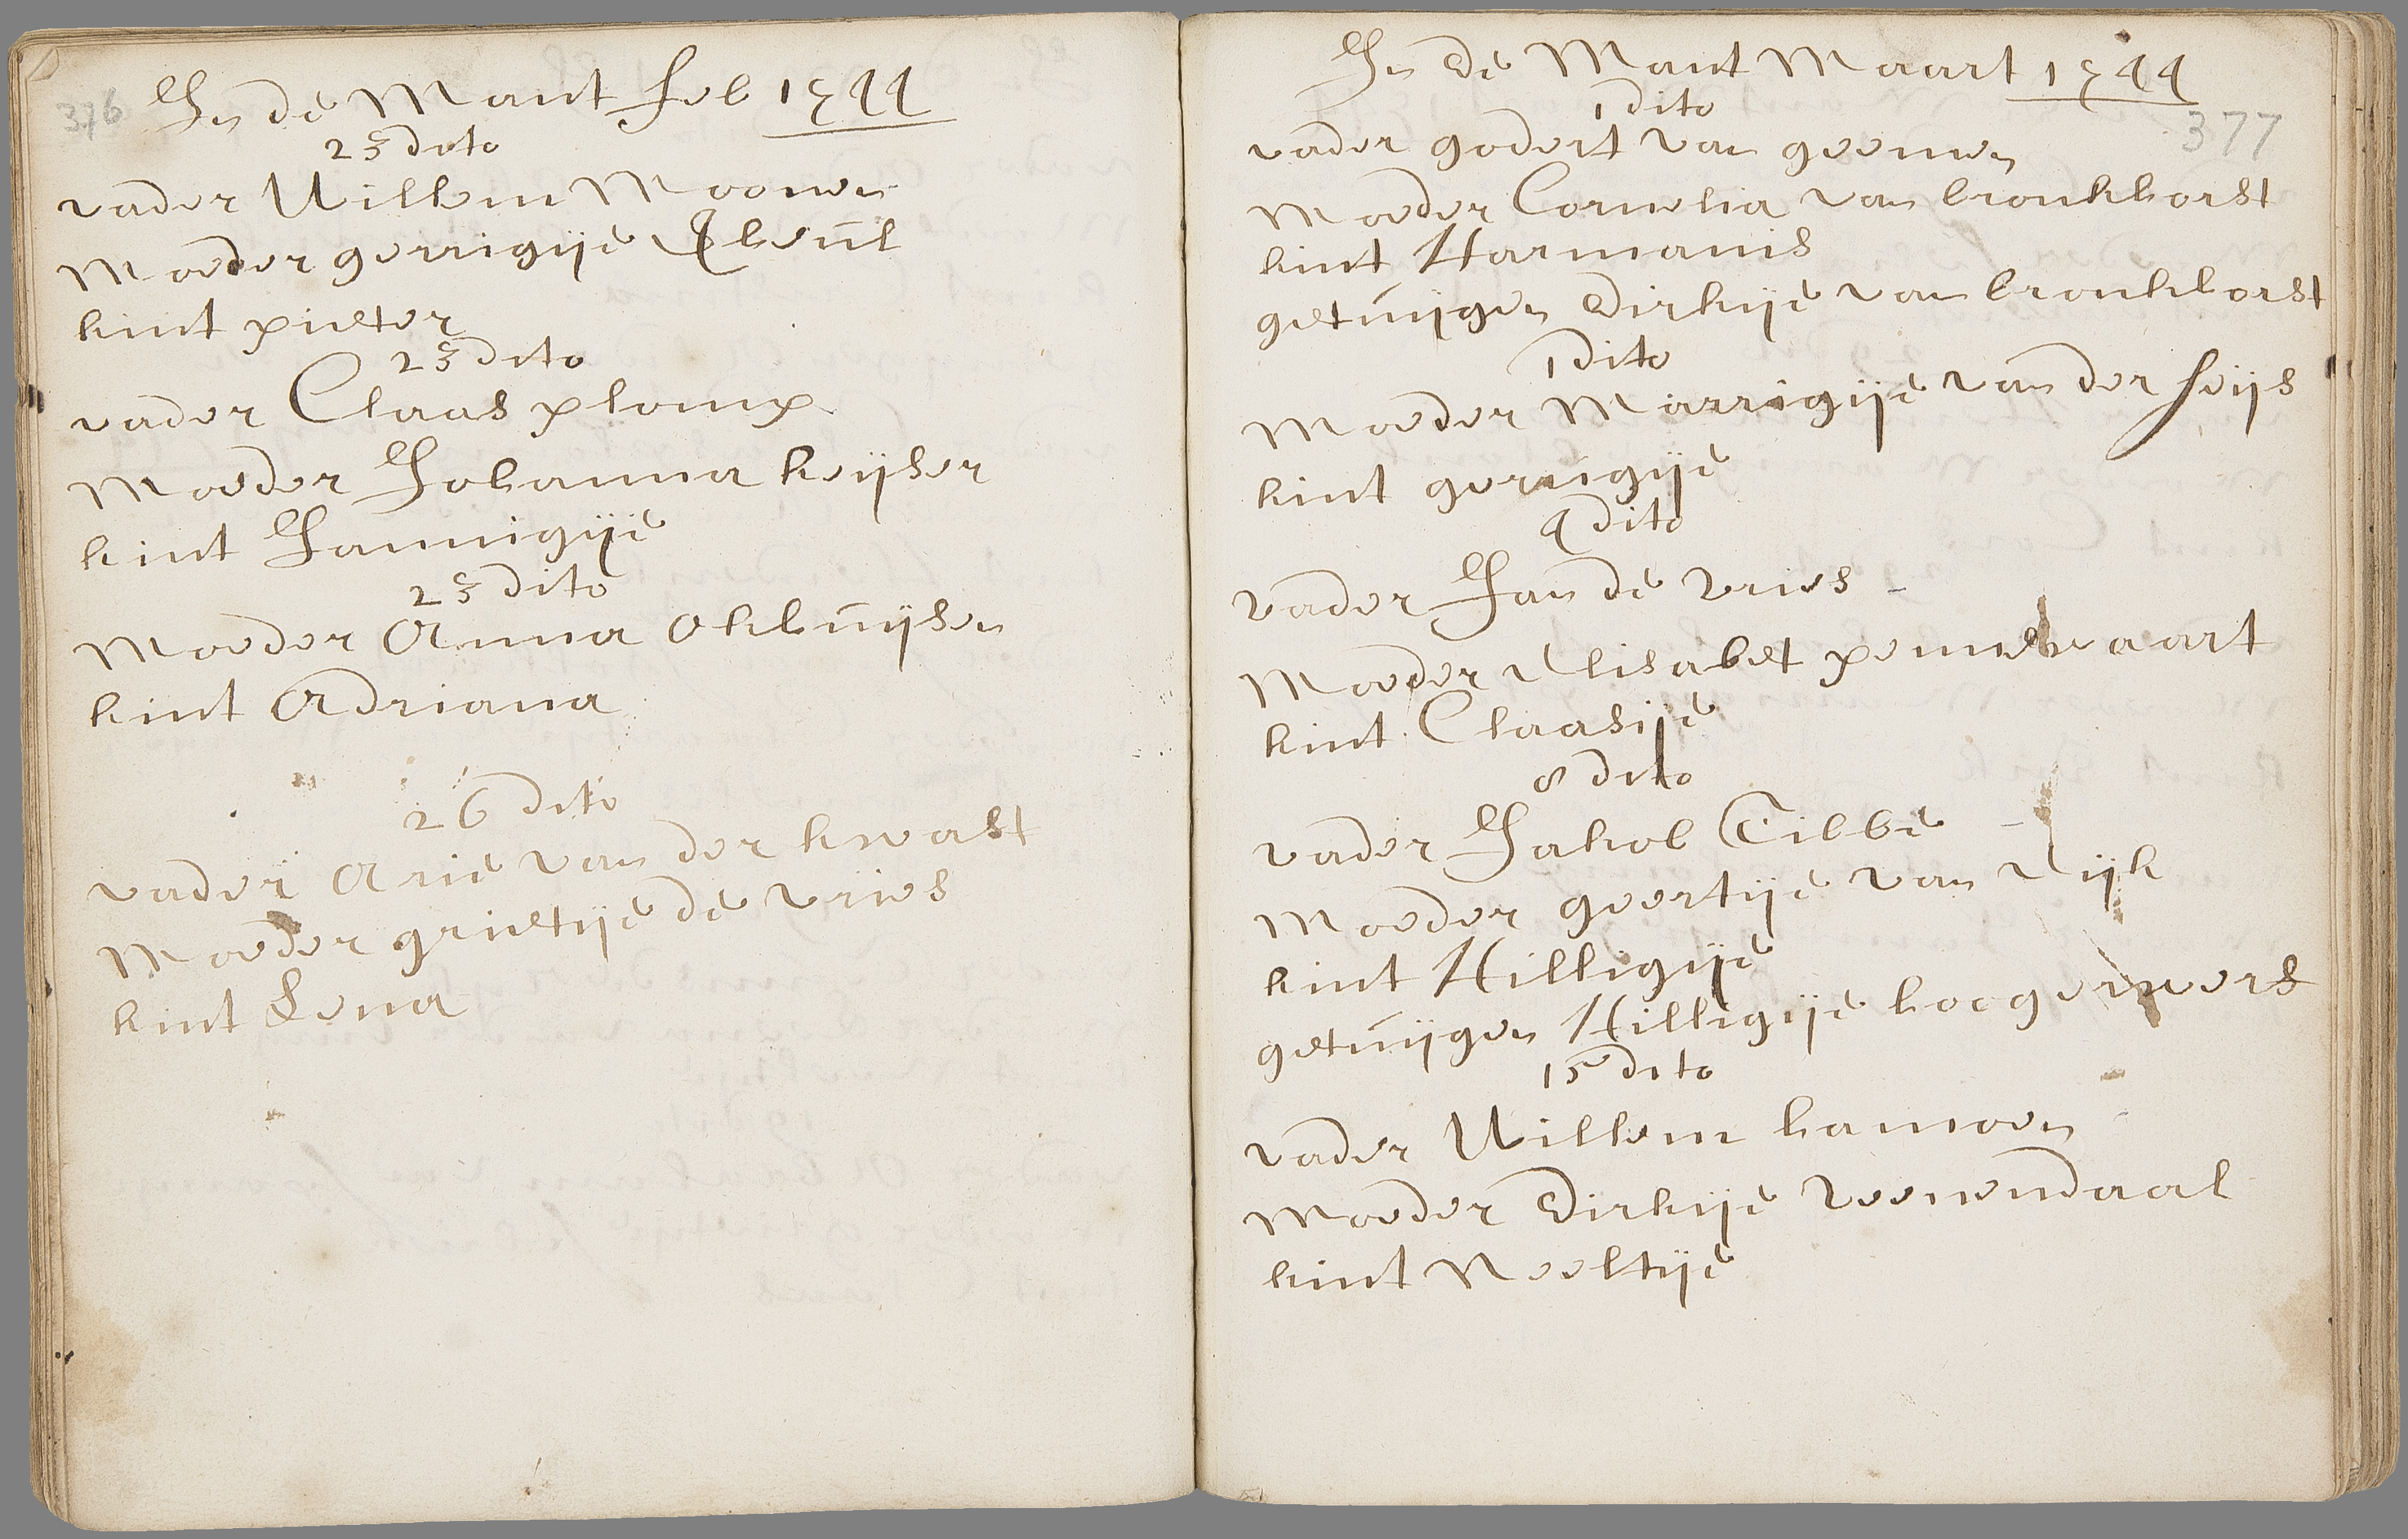 376
In de Mant feb 1744
23 dito
vader Willem Moonen
Moeder gerrigije
kint pieter
23 dito
vader Claas plomp
Moeder Johanna keijser
kint Jannigije
23 dito
Moeder Anna Okhuijsen
kint Adriana
26 dito
vader Arie van der kwast
Moeder grietije de vries
kint Lena
In de Mant Maart 1744
377
1 dito
vader godert van geenen
Moeder Cornelia van bronkhorst
kint Harmanis
getuijgen Dirkije van bronkhorst
1 dito
Moeder Marrigije van der
kint gerrigije
4 dito
vader Jan de vries
Moeder Elisabet
kint Claasije
8 dito
vader Jakob Tibbe
Moeder geertije van Eijk
kint Hilligije
getuijgen Hilligije
15 dito
vader Willem hamoen
Moeder Dirkije veenendaal
kint Neeltije